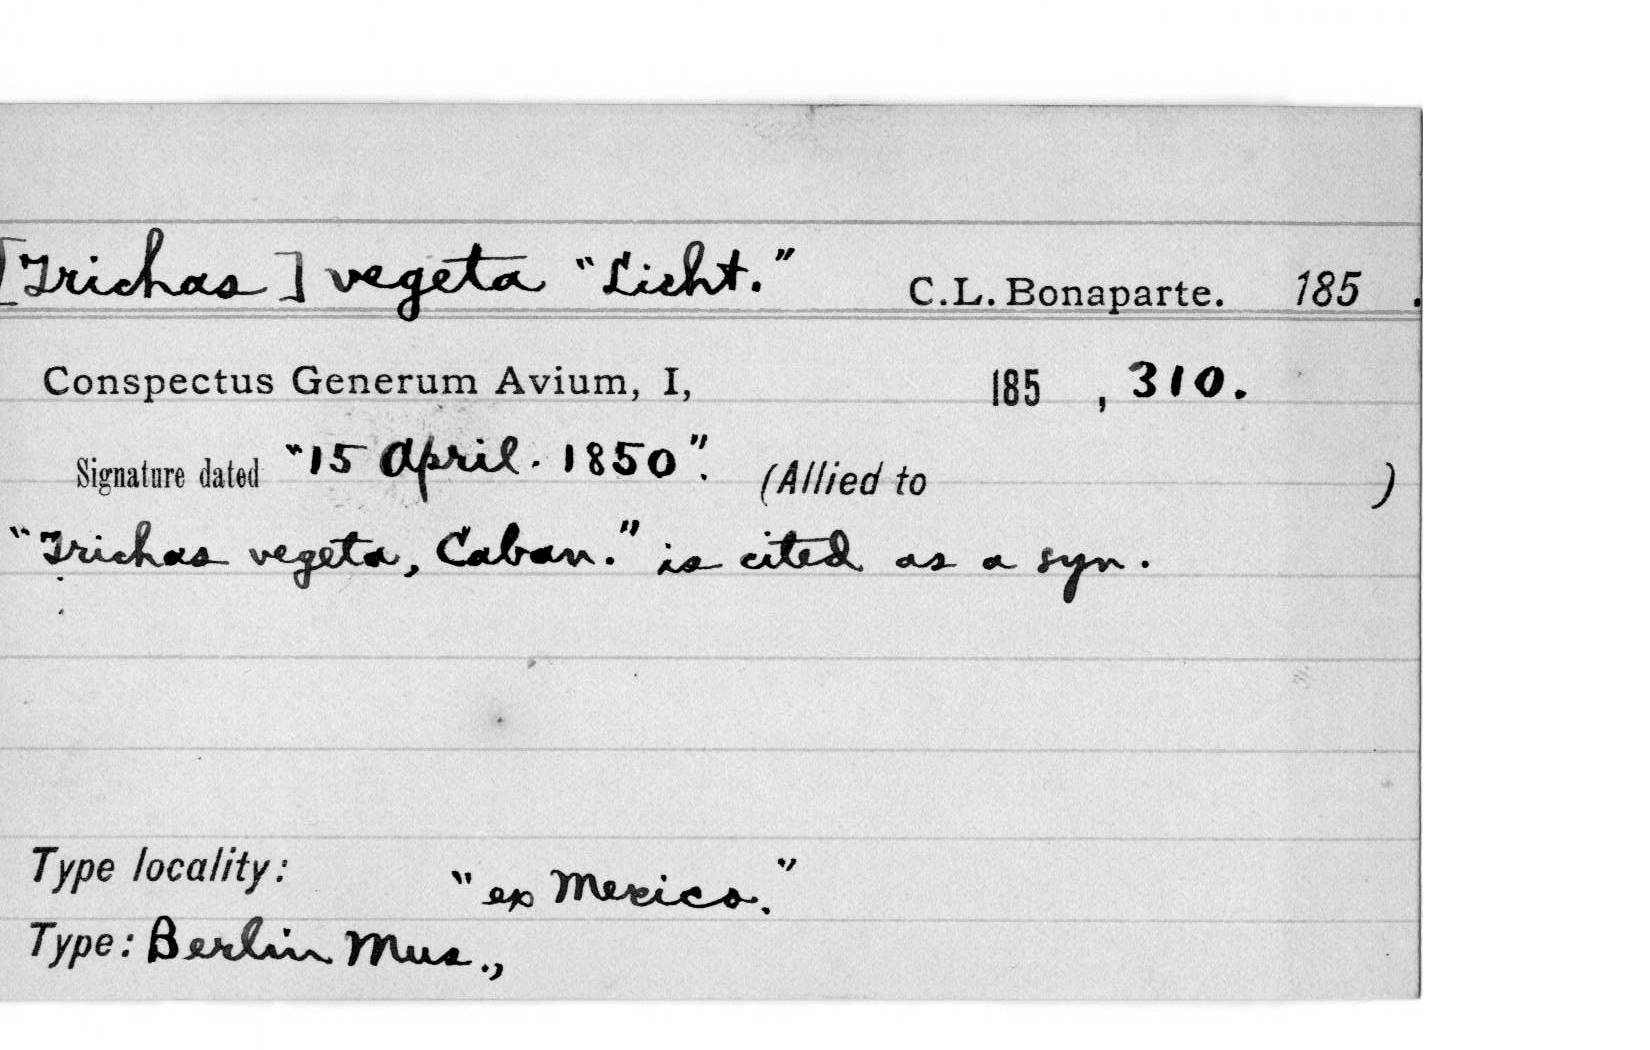 [Trichas] vegeta "Licht." C.L. Bonaparte. 185 .
Conspectus Generum Avium, I, 185 , 310.
Signature dated "15 April. 1850". (Allied to )
"Trichas vegeta, Caban." is cited as a syn.
Type locality: "ex Mexico."
Type: Berlin Mus.,